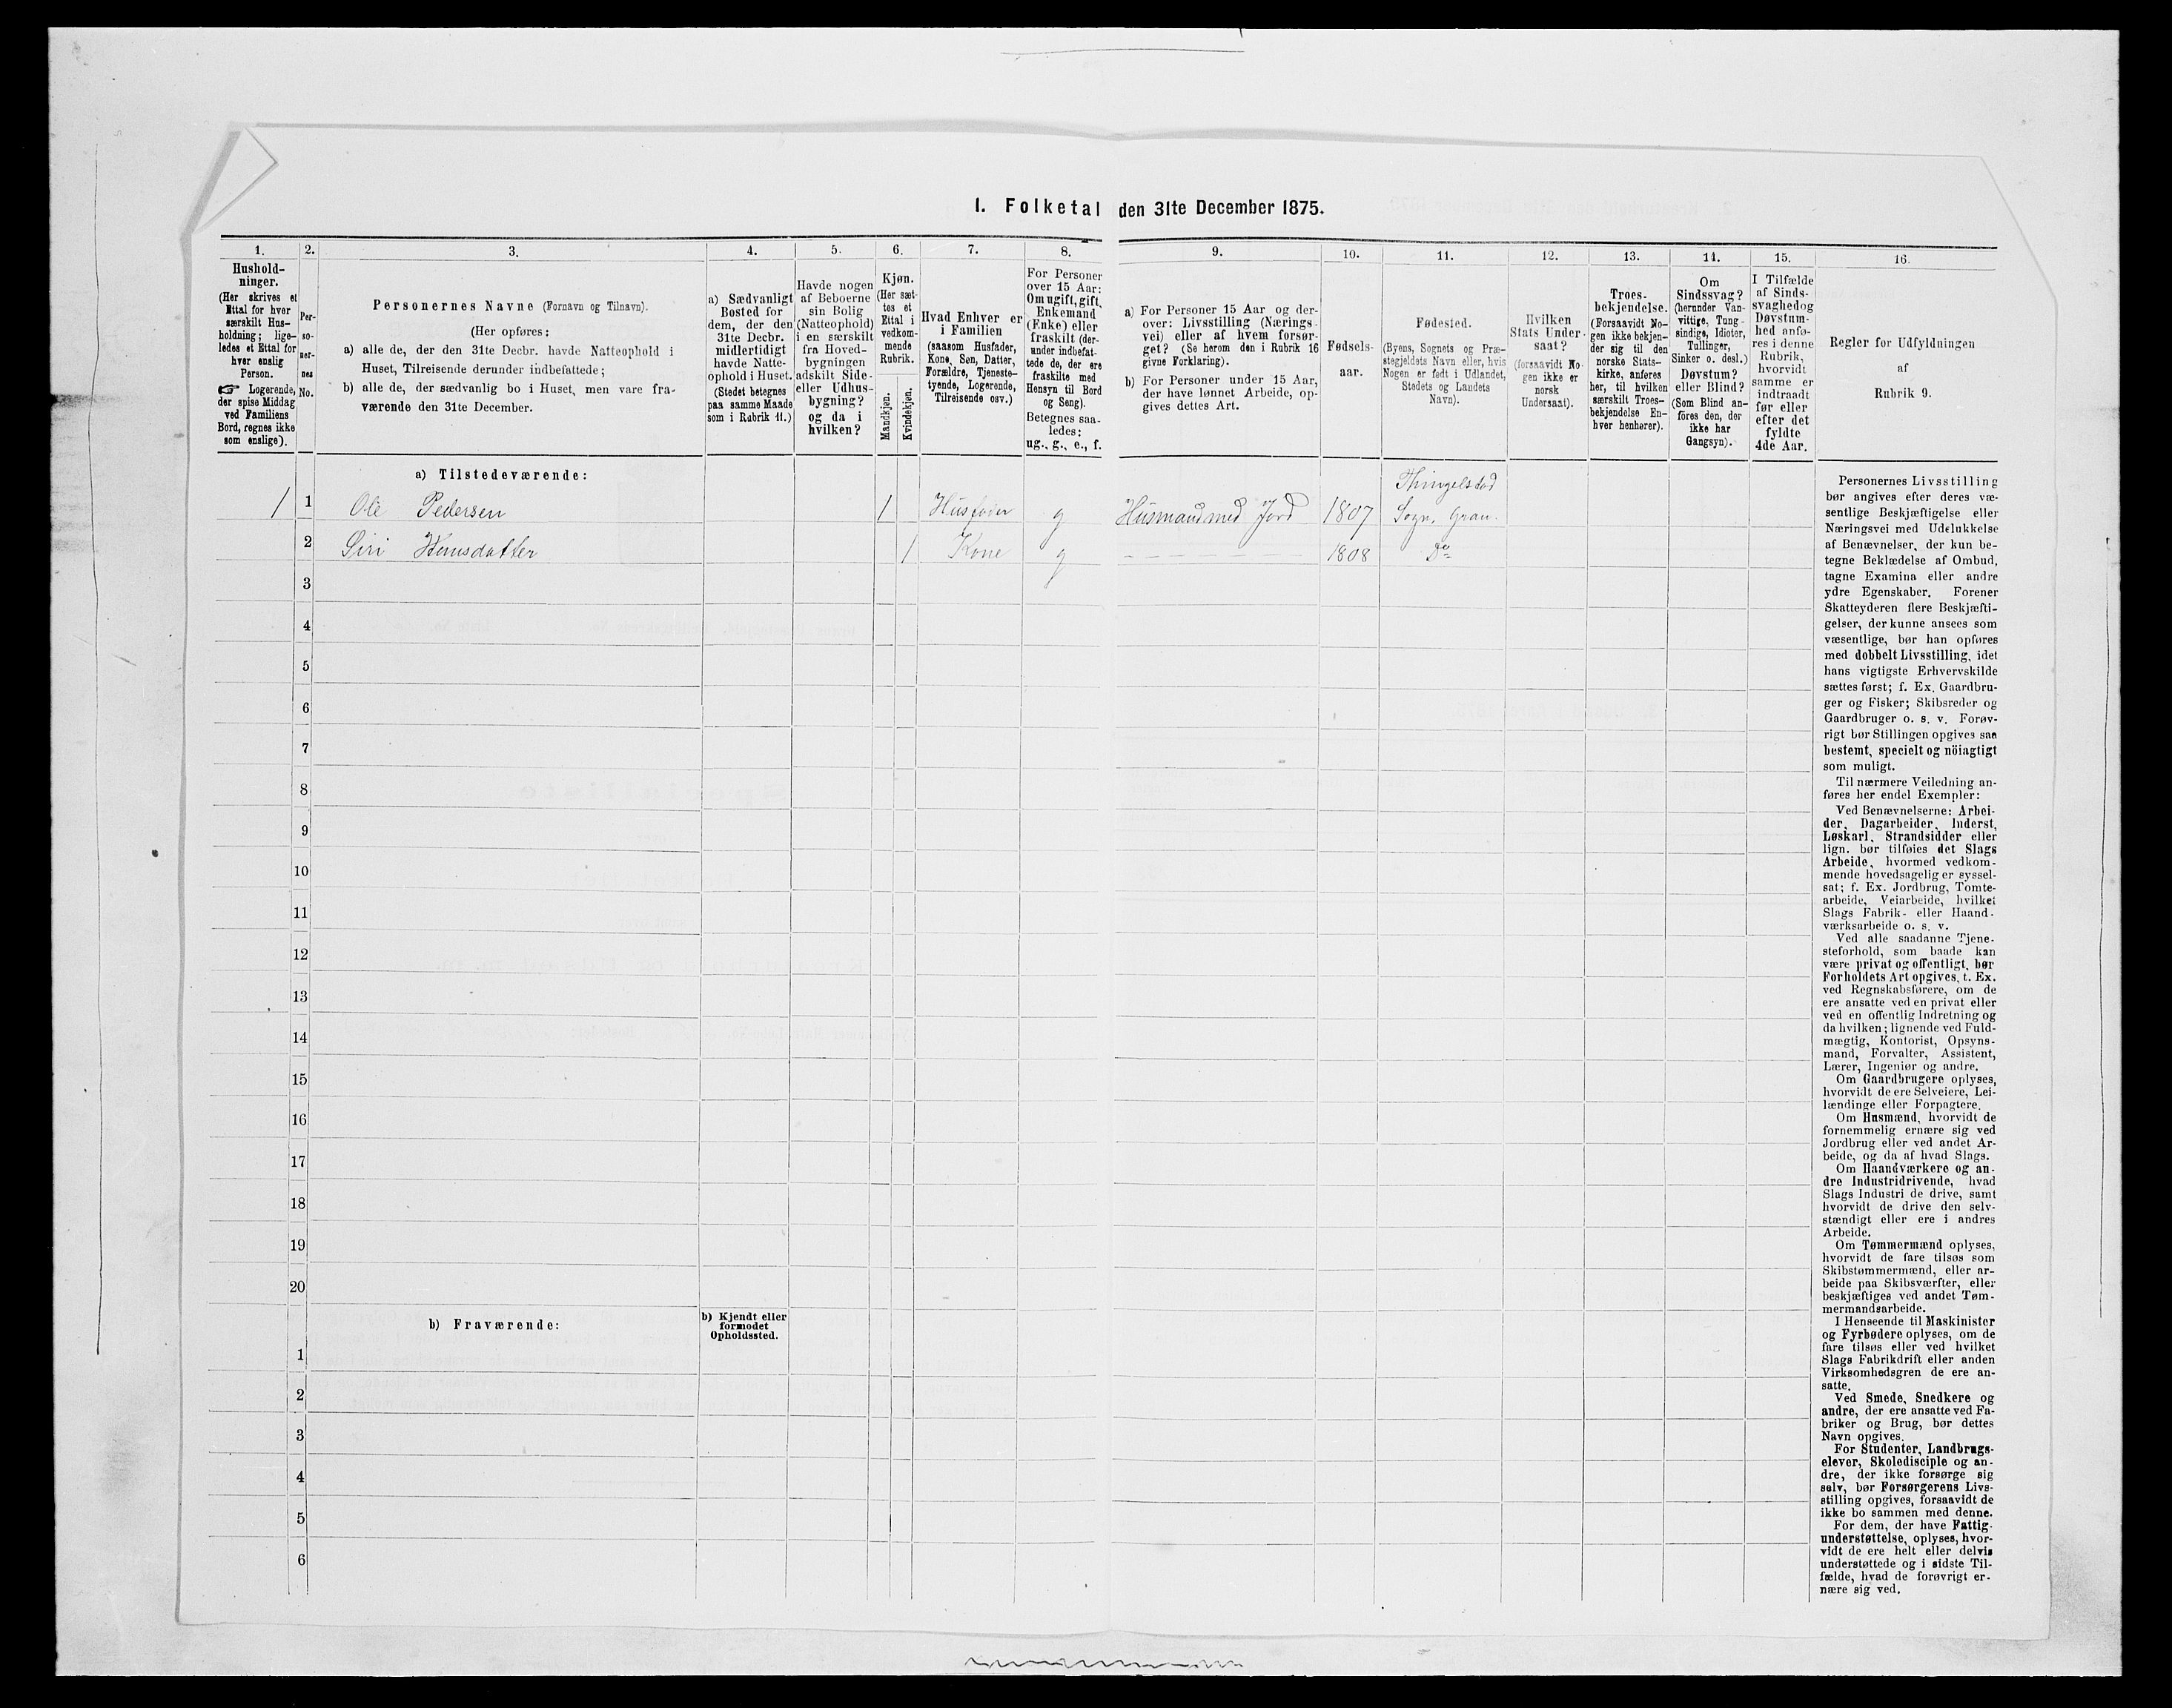 I. Folketal den 31te December 1875.
1.
2.
3.
4.
5.
6.
7.
8.
9.
10.
11.
12.
13.
14.
15.
16.
Hushold-
ninger.
(Her skrives et
Ettal for hver
særskilt Hus-
holdning; lige-
ledes et Ettal for
hver enslig
Person.
☞ Logerende,
der spise Middag
ved Familiens
Bord, regnes ikke
som enslige).
Per-
so-
ner-
nes
No.
Personernes Navne (Fornavn og Tilnavn).
(Her opføres:
a) alle de, der den 31te Decbr. havde Natteophold i
Huset, Tilreisende derunder indbefattede;
b) alle de, der sædvanlig bo i Huset, men vare fra-
værende den 31te December.
a) Sædvanligt
Bosted for
dem, der den
31te Decbr.
midlertidigt
havde Natte-
ophold i Huset.
(Stedet betegnes
paa samme Maade
som i Rubrik 11.)
Havde nogen
af Beboerne
sin Bolig
(Natteophold)
i en særskilt
fra Hoved-
bygningen
adskilt Side-
eller Udhus-
bygning?
og da i
hvilken?
Kjøn.
(Her sæt-
tes et
Ettal i
vedkom-
mende
Rubrik.
Mandkjøn.
Kvindekjøn.
Hvad Enhver er
i Familien
(saasom Husfader,
Kone, Søn, Datter,
Forældre, Tjeneste-
tyende, Logerende,
Tilreisende osv.)
For Personer
over 15 Aar:
Om ugift, gift,
Enkemand
(Enke) eller
fraskilt (der-
under indbefat-
tede de, der ere
fraskilte med
Hensyn til Bord
og Seng).
Betegnes saa-
ledes:
ug., g., e., f.
a) For Personer 15 Aar og der-
over: Livsstilling (Nærings-
vei) eller af hvem forsør-
get? (Se herom den i Rubrik 16
givne Forklaring).
b) For Personer under 15 Aar,
der have lønnet Arbeide, op-
gives dettes Art.
Fødsels-
aar.
Fødested.
(Byens, Sognets og Præ-
stegjeldets Navn eller, hvis
Nogen er født i Udlandet,
Stedets og Landets
Navn).
Hvilken
Stats Under-
saat?
(forsaavidt No-
gen ikke er
norsk
Undersaat).
Troes-
bekjendelse.
(Forsaavidt No-
gen ikke bekjen-
der sig til den
norske Stats-
kirke, anføres
her, til hvilken
særskilt Troes-
bekjendelse En-
hver henhører).
Om
Sindssvag?
(herunder Van-
vittige, Tung-
sindige, Idioter,
Tullinger,
Sinker o. desl.)
Døvstum?
eller Blind?
(Som Blind an-
føres den, der
ikke har
Gangsyn).
I Tilfælde
af Sinds-
svaghed og
Døvstum-
hed anfø-
res i denne
Rubrik,
hvorvidt
samme er
indtraadt
før eller
efter det
fyldte
4de Aar.
Regler for Udfyldningen
af
Rubrik 9.
a) Tilstedeværende:
Thingelstad
1 1 Ole Pedersen 1 Husfader g Husmand med Jord 1807 Sogn, Gran.
2 Siri Hansdatter 1 Kone g 1808 Do
3 g
4
5
6
7
8
9
10
11
12
13
14
15
16
17
18
19
20
b) Fraværende:
b) Kjendt eller
formodet
Opholdssted.
1
2
3
4
5
6
Personernes Livsstilling
bør angives efter deres væ-
sentlige Beskjæftigelse eller
Næringsvei med Udelukkelse
af Benævnelser, der kun be-
tegne Beklædelse af Ombud,
tagne Examina eller andre
ydre Egenskaber. Forener
Skatteyderen flere Beskjæfti-
gelser, der kunne ansees som
væsentlige, bør han opføres
med dobbelt Livsstilling, idet
hans vigtigste Erhvervskilde
sættes først; f. Ex. Gaardbru-
ger og Fisker; Skibsreder og
Gaardbruger o. s. v. Forøv-
rigt bør Stillingen opgives saa
bestemt, specielt og nöiagtigt
som muligt.
Til nærmere Veiledning an-
føres her endel Exempler:
Ved Benævnelserne: Arbei-
der, Dagarbeider, Inderst,
Løskarl, Strandsidder eller
lign. bør tilføies det Slags
Arbeide, hvormed vedkom-
mende hovedsagelig er syssel-
sat; f. Ex. Jordbrug, Tomte-
arbeide, Veiarbeide, hvilket
Slags Fabrik- eller Haand-
værksarbeide o. s. v.
Ved alle saadanne Tjene-
steforhold, som baade kan
være privat og offentligt, bør
Forholdets Art opgives, t. Ex.
ved Regnskabsførere, om de
ere ansatte ved en privat eller
ved en offentlig Indretning og
da hvilken; lignende ved Fuld-
mægtig, Kontorist, Opsyns-
mand, Forvalter, Assistent,
Lærer, Ingeniør og andre.
Om Gaardbrugere oplyses,
hvorvidt de ere Selveiere, Lei-
lændinge eller Forpagtere.
Om Husmænd, hvorvidt de
fornemmelig ernære sig ved
Jordbrug eller ved andet Ar-
beide, og da af hvad Slags.
Om Haandværkere og an-
dre Industridrivende, hvad
Slags Industri de drive, samt
hvorvidt de drive den selv-
stændigt eller ere i andres
Arbeide.
Om Tømmermænd oplyses,
hvorvidt de fare tilsøs som
Skibstømmermænd, eller ar-
beide paa Skibsværfter, eller
beskjæftiges ved andet Tøm-
mermandsarbeide.
I Henseende til Maskinister
og Fyrbødere oplyses, om de
fare tilsøs eller ved hvilket
Slags Fabrikdrift eller anden
Virksomhedsgren de ere an-
satte.
Ved Smede, Snedkere og
andre, der ere ansatte ved Fa-
briker og Brug, bør dettes
Navn opgives.
For Studenter, Landbrugs-
elever, Skoledisciple og an-
dre, der ikke forsørge sig
selv, bør Forsørgerens Livs-
stilling opgives, forsaavidt de
ikke bo sammen med denne.
For dem, der have Fattig-
understøttelse, oplyses, hvor-
vidt de ere helt eller delvis
understøttede og i sidste Til-
fælde, hvad de forøvrigt er-
nære sig ved.